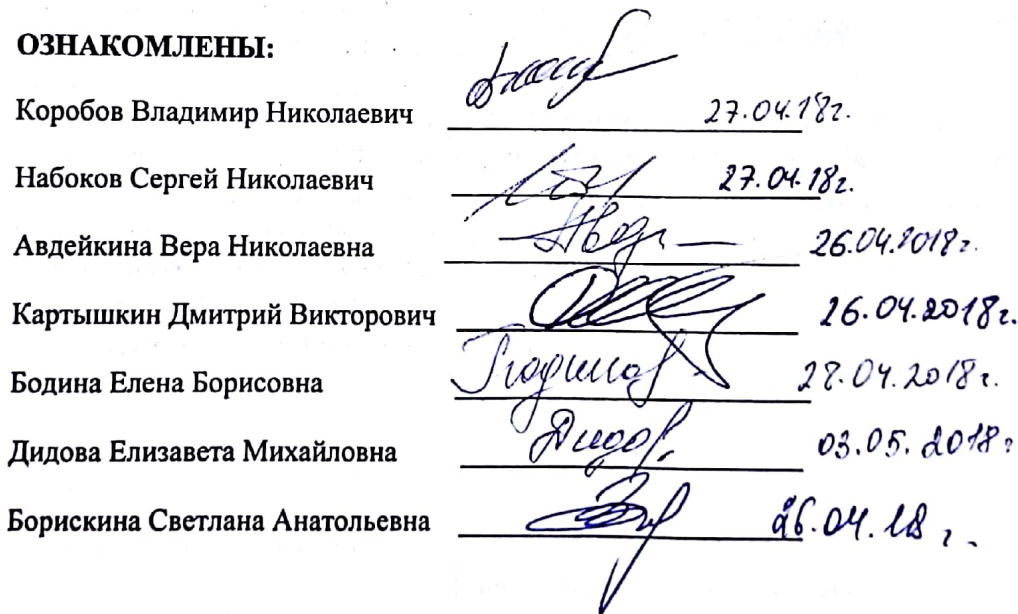 ОЗНАКОМЛЕНЫ:
Коробов Владимир Николаевич 27.04.18г.
Набоков Сергей Николаевич 27.04.18г.
Авдейкина Вера Николаевна 26.04.2018г.
Картышкин Дмитрий Викторович 26.04.2018г.
Бодина Елена Борисовна 28.04.2018г.
Дидова Елизавета Михайловна 03.05.2018г
Борискина Светлана Анатольевна 26.04.18г.